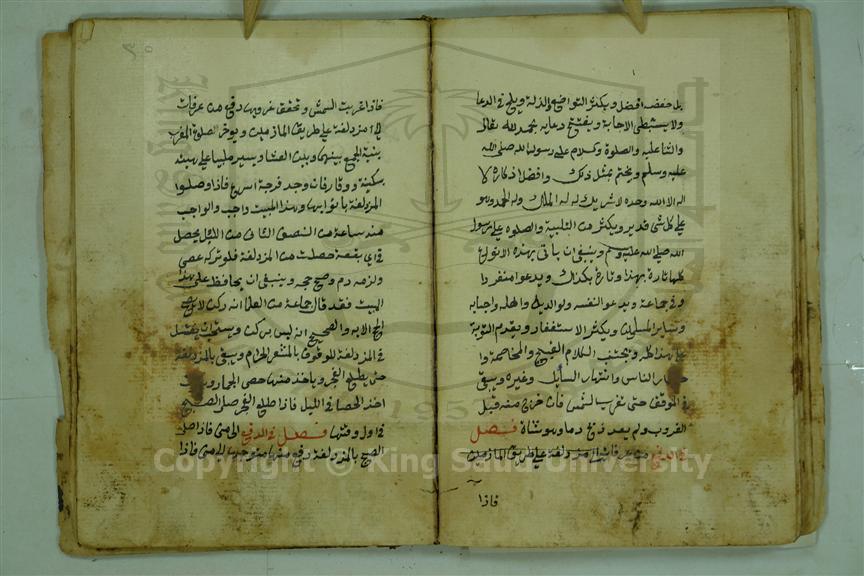 بل خفضه افضل ويكثر التواضع والذلة ويلح في الدعا
ولا يستبطئ الاجابة ويفتتح دعايه بحمد الله تعالى
والثنا عليه والصلوة وكلام على رسول الله صلى الله
عليه وسلم ويختم بمثل ذلك وافضل اذكاره لا
اله الا الله وحده لا شريك له له الملك وله الحمد وهو
على كل شي قدير ويكثر من التلبية والصلوة على رسول
الله صلى الله عليه وسلم وينبغي ان ياتي بهذه الانواع
كلها تارة بهذا وتارة بكذلك ويدعوا منفردا
وفي جماعة ويدعو لنفسه ولوالديه واهله واحبابه
وساير المسلمين ويكثر الاستغفار ويقدم التوبة
على هذا كله ويجتنب الكلام القبيح والمخاصمة وا
الناس وانتهار السايل وغيره ويبقى
في الموقف حتى تغرب الشمس فان خرج منه قبل
الغروب ولم يعد ذبح دما وهو شاة فصل
في الدفع من عرفات الى مزدلفة على طريق المازمين
فاذا
فاذا غربت الشمس وتحقق غروبها دفع من عرفات
الى مزدلفة على طريق المازمين ويوخر الصلوة المغرب
بنية الجمع بينها وبين العشا ويسير ملبيا على هيئته
بسكينة ووقار فان وجد فرجة اسرع فاذا وصلوا
المزدلفة باتوا بها وهذا المبيت واجب والواجب
منه ساعة من النصف الثاني من الليل يحصل
في اي بقعة حصلت من المزدلفة فلو تركه عصى
ولزمه دم وصح حجه وينبغي ان يحافظ على هذا
المبيت فقد قال جماعة من العلما انه ركن لا يصح
الحج الا به والصحيح انه ليس بركن ويستحب ان يغتسل
في المزدلفة للوقوف بالمشعر الحرام ويبقى بالمزدلفة
حتى يطلع الفجر وياخذ منها حصى الجمار
اخذ الحصا في الليل فاذا طلع الفجر صلى الصبح
في اول وقتها فصل في الدفع الى منى فاذا صلى
الصبح بالمزدلفة دفع منها متوجها الى منى فاذا
Copyright © King Saud University
1957